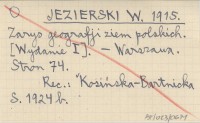 JEZIERSKI W. 1915.
Zarys geografji ziem polskich.
[Wydanie I]. – Warszawa.
Stron 74.
Rec.: Kosińska-Bartnicka
S. 1924 b.